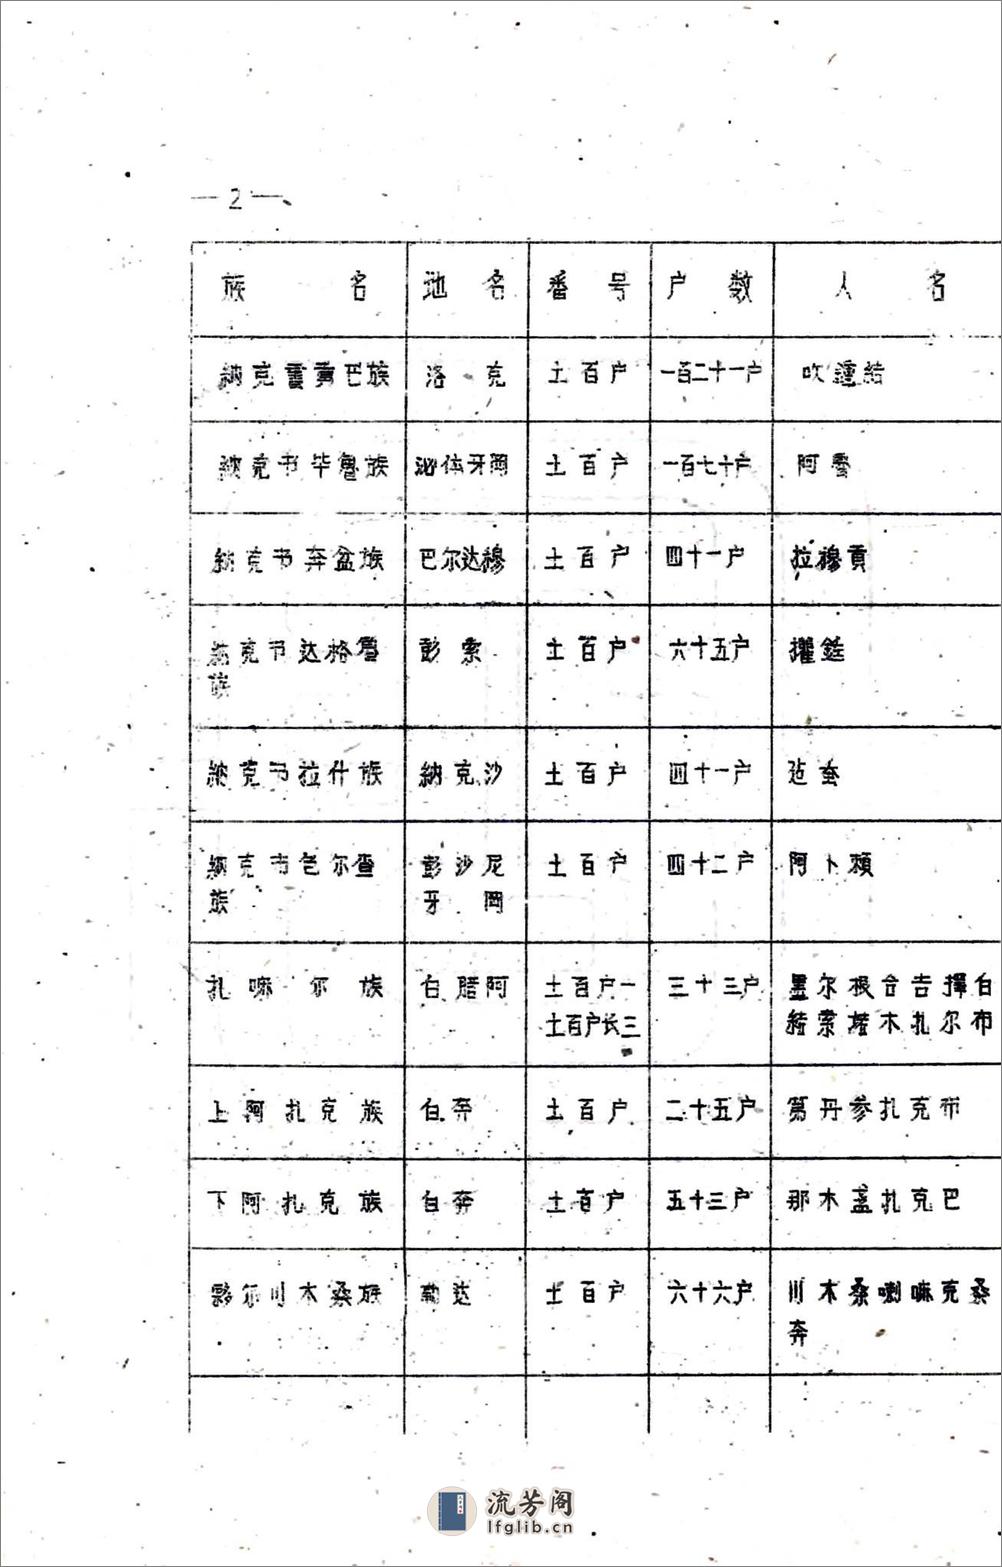 —2—
族名 地名 番号 户数 人名
納克書貢巴族 洛克 土百户 一百二十一户 吹鍾結
納克书毕魯族 泌体牙岡 土百户 一百七十户 阿魯
納克书奔盆族 巴尔达穆 土百户 四十一户 拉穆貢
納克书达格魯 彭索 土百户 六十五户
族
納克书拉什族 納克沙 土百户 四十一户
納克书色尔查 彭沙尼 土百户 四十二户 阿卜賴
族 牙岡
扎嘛尔族 白腊阿 土百户一 三十三户 墨尔根台吉擇白
土百户长三 結索塔木扎尔布
上阿扎克族 白奔 土百户 二十五户 第丹参扎克布
下阿扎克族 白奔 土百户 五十三户 那木盖扎克巴
夥尔川木桑族 勒达 土百户 六十六户 川木桑喇嘛克桑
奔
流芳阁
lfglib.cn